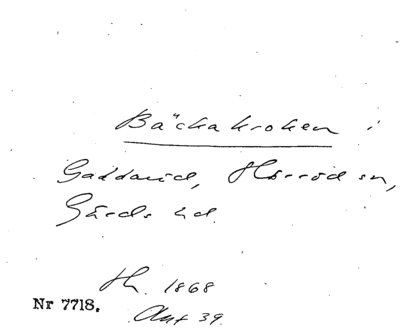 Bäckakroken i
Gaddaröd, Hörröd sn,
Gärds hd.
Th. 1868
Nr 7718.
Ant 39.